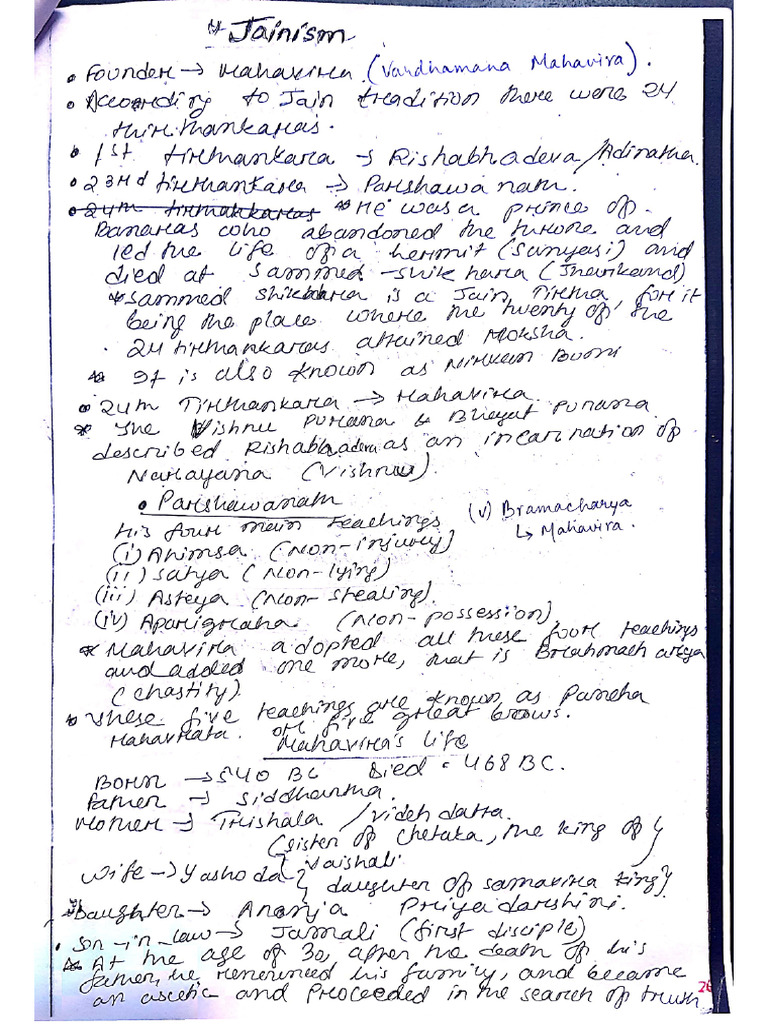 * Jainism
• Founder → Mahavira (Vardhamana Mahavira).
• According to Jain tradition there were 24
thirthankaras.
• 1st tirthankara → Rishabhadeva/Adinatha.
• 23rd tirthankara → Parshawanath.
• 24th tirthankaras * He was a prince of
Banaras who abandoned the throne and
led the life of a hermit (Sanyasi) and
died at Sammed-Shikhara (Jharkand)
* Sammed Shikhara is a Jain Tirtha, for it
being the place where the twenty of the
24 tirthankaras attained Moksha.
* It is also known as Nirvan Bumi
• 24th Tirthankara → Mahavira.
* The Vishnu Purana & Bhagat Purana
described Rishabhadeva as an incarnation of
Narayana (Vishnu).
• Parshawanath
His four main teachings
(v) Bramacharya
↳ Mahavira.
(i) Ahimsa (Non-injury)
(ii) Satya (Non-lying)
(iii) Asteya (Non-stealing).
(iv) Aparigraha (Non-possession)
* Mahavira adopted all these four teachings
and added one more, that is Brahmacharya
(chastity).
• These five teachings are known as Pancha
Mahavrata. or five great vows.
Mahavira's life
Born → 540 BC Died = 468 BC.
Father → Siddhartha.
Mother → Trishala / Videhdatta.
(sister of Chetaka, the king of
Vaishali
Wife → Yashoda { daughter of Samavira king}
* Daughter → Anonja Priyadarshini.
• Son-in-law → Jamali (first disciple)
* At the age of 30, after the death of his
father, he renounced his family, and became
an ascetic and proceeded in the search of truth